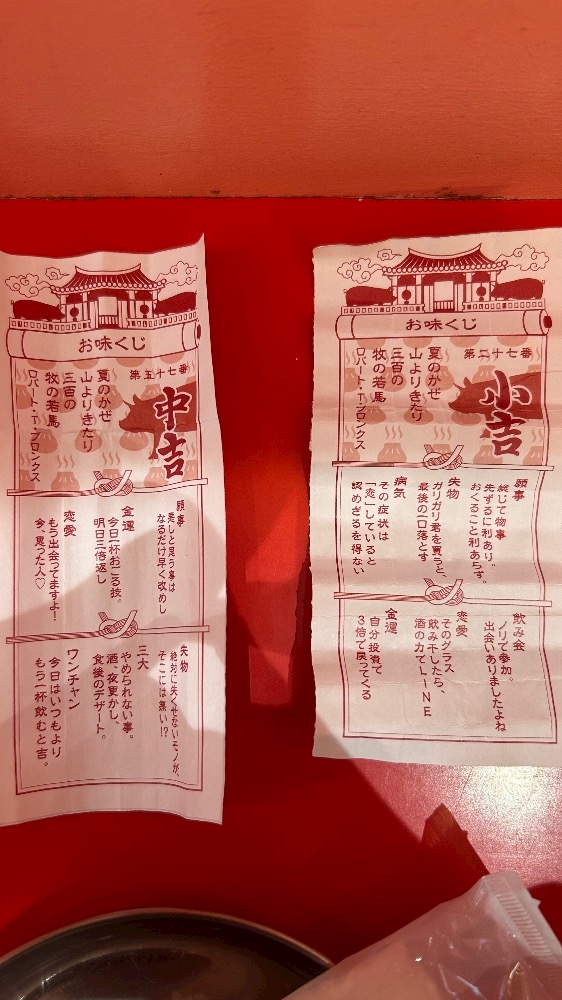 お味くじ
第五十七番
中吉
夏のかぜ
山よりきたり
三百の
牧の若馬
ロバート・T・ブロンクス
願事
悪しと思う事は
なるだけ早く改めし
金運
今日一杯おごる技。
明日三倍返し
恋愛
もう出会ってますよ！
今、思った人♡
失物
絶対に失くせないモノが、
そこには無い!?
三大
やめられない事。
酒、夜更かし、
食後のデザート。
ワンチャン
今日はいつもより
もう一杯飲むと吉。
お味くじ
第二十七番
小吉
夏のかぜ
山よりきたり
三百の
牧の若馬
ロバート・T・ブロンクス
願事
総じて物事
先ずるに利あり。
おくること利あらず。
失物
ガリガリ君を買うと、
最後の一口落とす
病気
その症状は
「恋」していると
認めざるを得ない
飲み会
ノリで参加。
出会いありましたよね
恋愛
そのグラス
飲み干したら、
酒の力でLINE
金運
自分投資で
3倍で戻ってくる